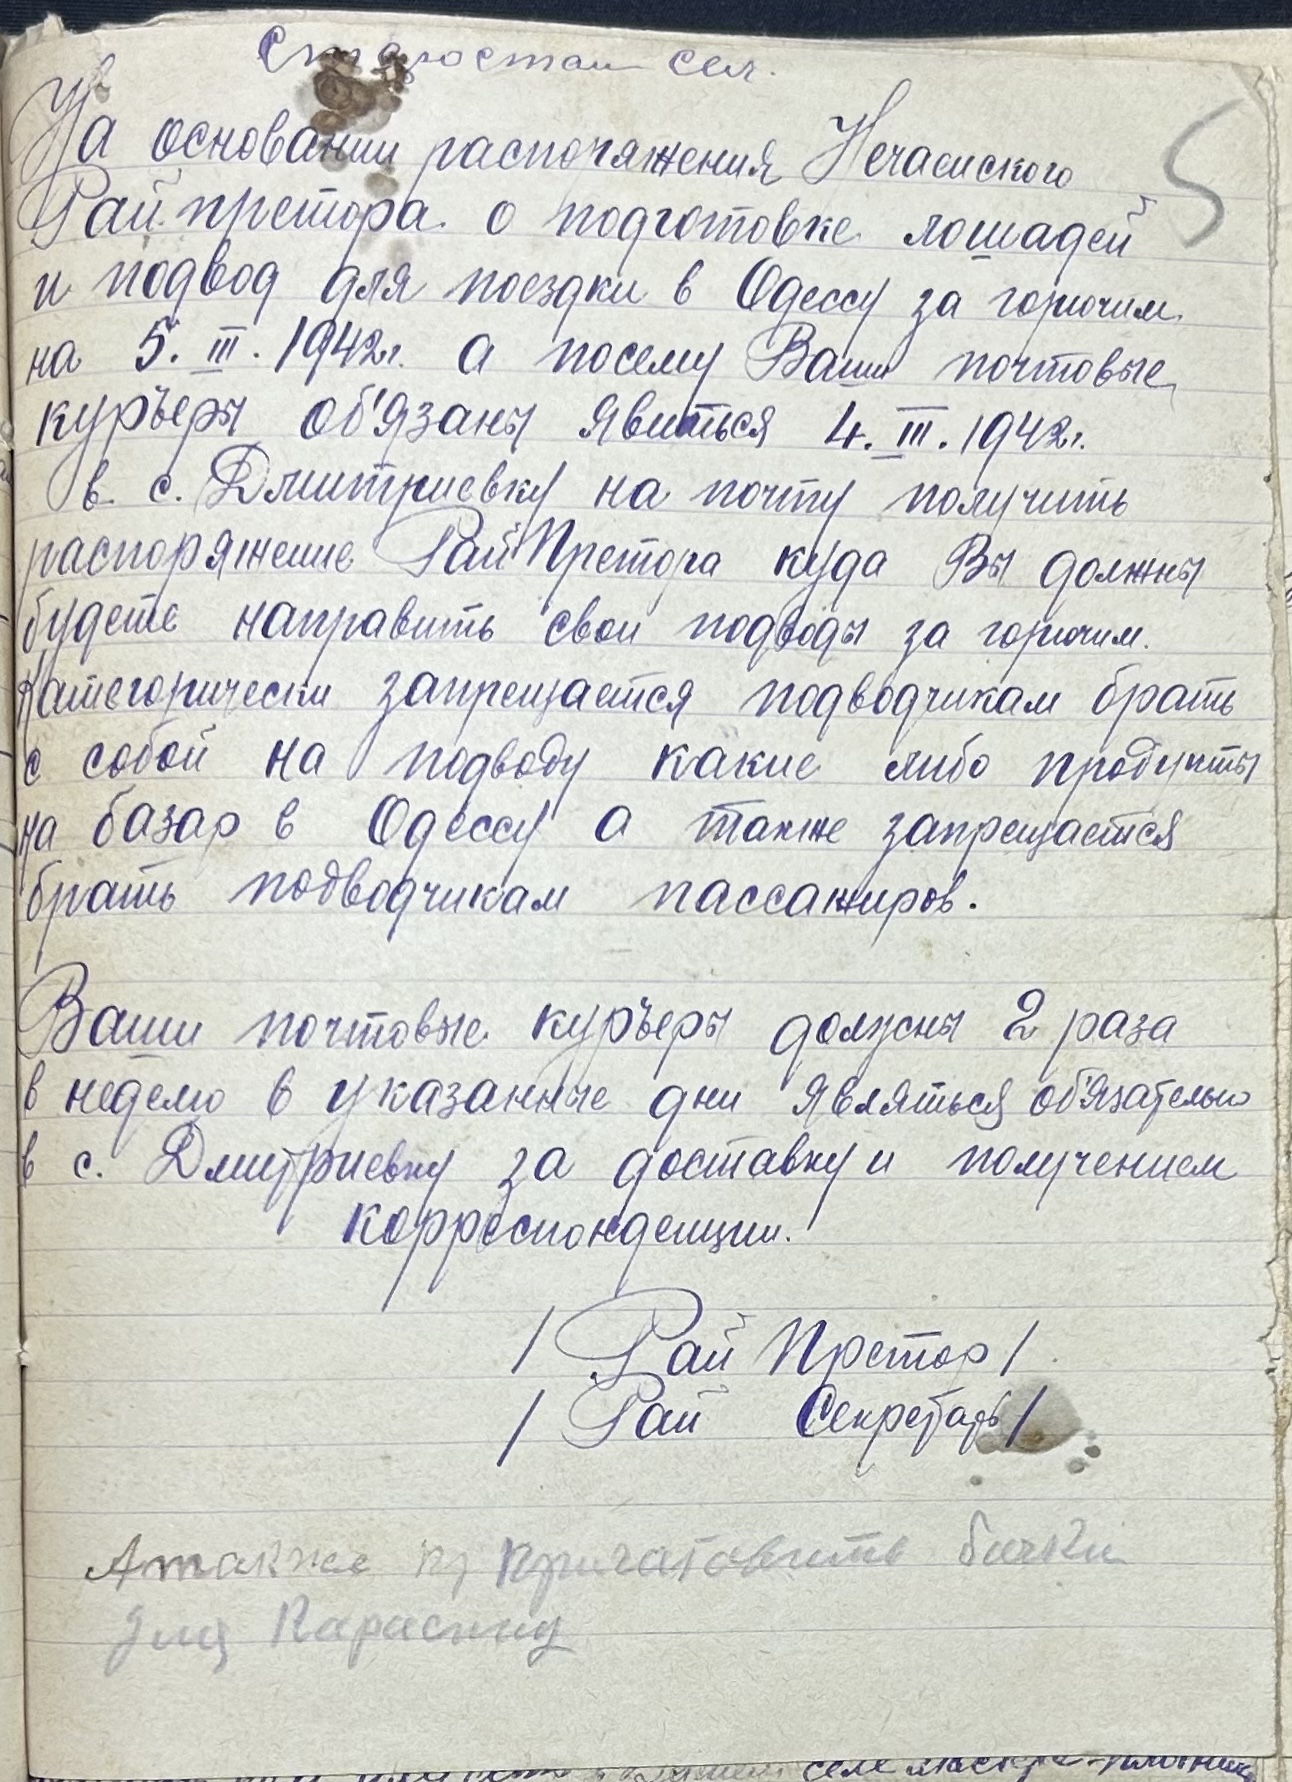 Старостам сел.
5
На основании распоряжения Нечаенского
Рай.претора. о подготовке лошадей
и подвод для поездки в Одессу за горючим.
на 5. III. 1942г. а посему Ваши почтовые
курьеры об'язаны явиться 4. III. 1942г.
в с. Дмитриевку на почту получить
распоряжение Рай Претора куда Вы должны
будете направить свои подводы за горючим.
Категорически запрещается подводчикам брать
с собой на подводу какие либо продукты
на базар в Одессу а также запрещается
брать подводчикам пассажиров.
Ваши почтовые курьеры должны 2 раза
в неделю в указанные дни являться об'язательно
в с. Дмитриевку за доставку и получением
корреспонденции.
/ Рай Претор /.
/ Рай Секретарь /
А также пригатовить бочки
для Карасину
селе